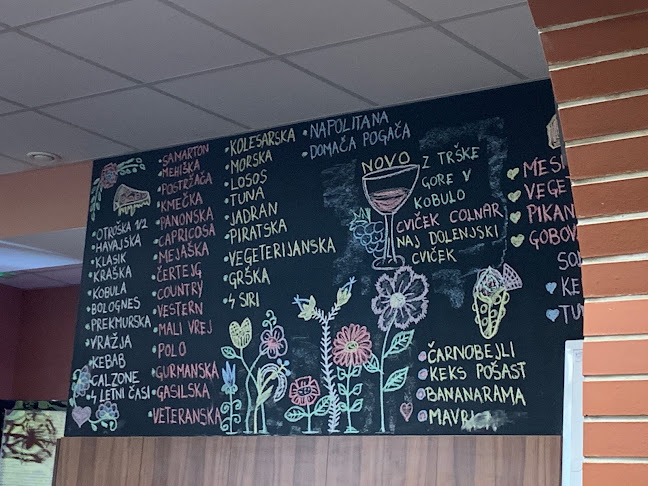 OTROŠKA 1/2
HAVAJSKA
KLASIK
KRAŠKA
KOBULA
BOLOGNES
PREKMURSKA
VRAŽJA
KEBAB
CALZONE
4 LETNI ČASI
SAMARTON
MEHIŠKA
POSTRŽAČA
KMEČKA
PANONSKA
CAPRICOSA
MEJAŠKA
ČERTEJG
COUNTRY
VESTERN
MALI VREJ
POLO
GURMANSKA
GASILSKA
VETERANSKA
KOLESARSKA
MORSKA
LOSOS
TUNA
JADRAN
PIRATSKA
VEGETERIJANSKA
GRŠKA
4 SIRI
NAPOLITANA
DOMAČA POGAČA
NOVO
Z TRŠKE
GORE V
KOBULO
CVIČEK COLNAR
NAJ DOLENJSKI
CVIČEK
ČARNOBEJLI
KEKS POŠAST
BANANARAMA
MAVRI
MES
VEGE
PIKAN
GOBOV
SO
KE
TU